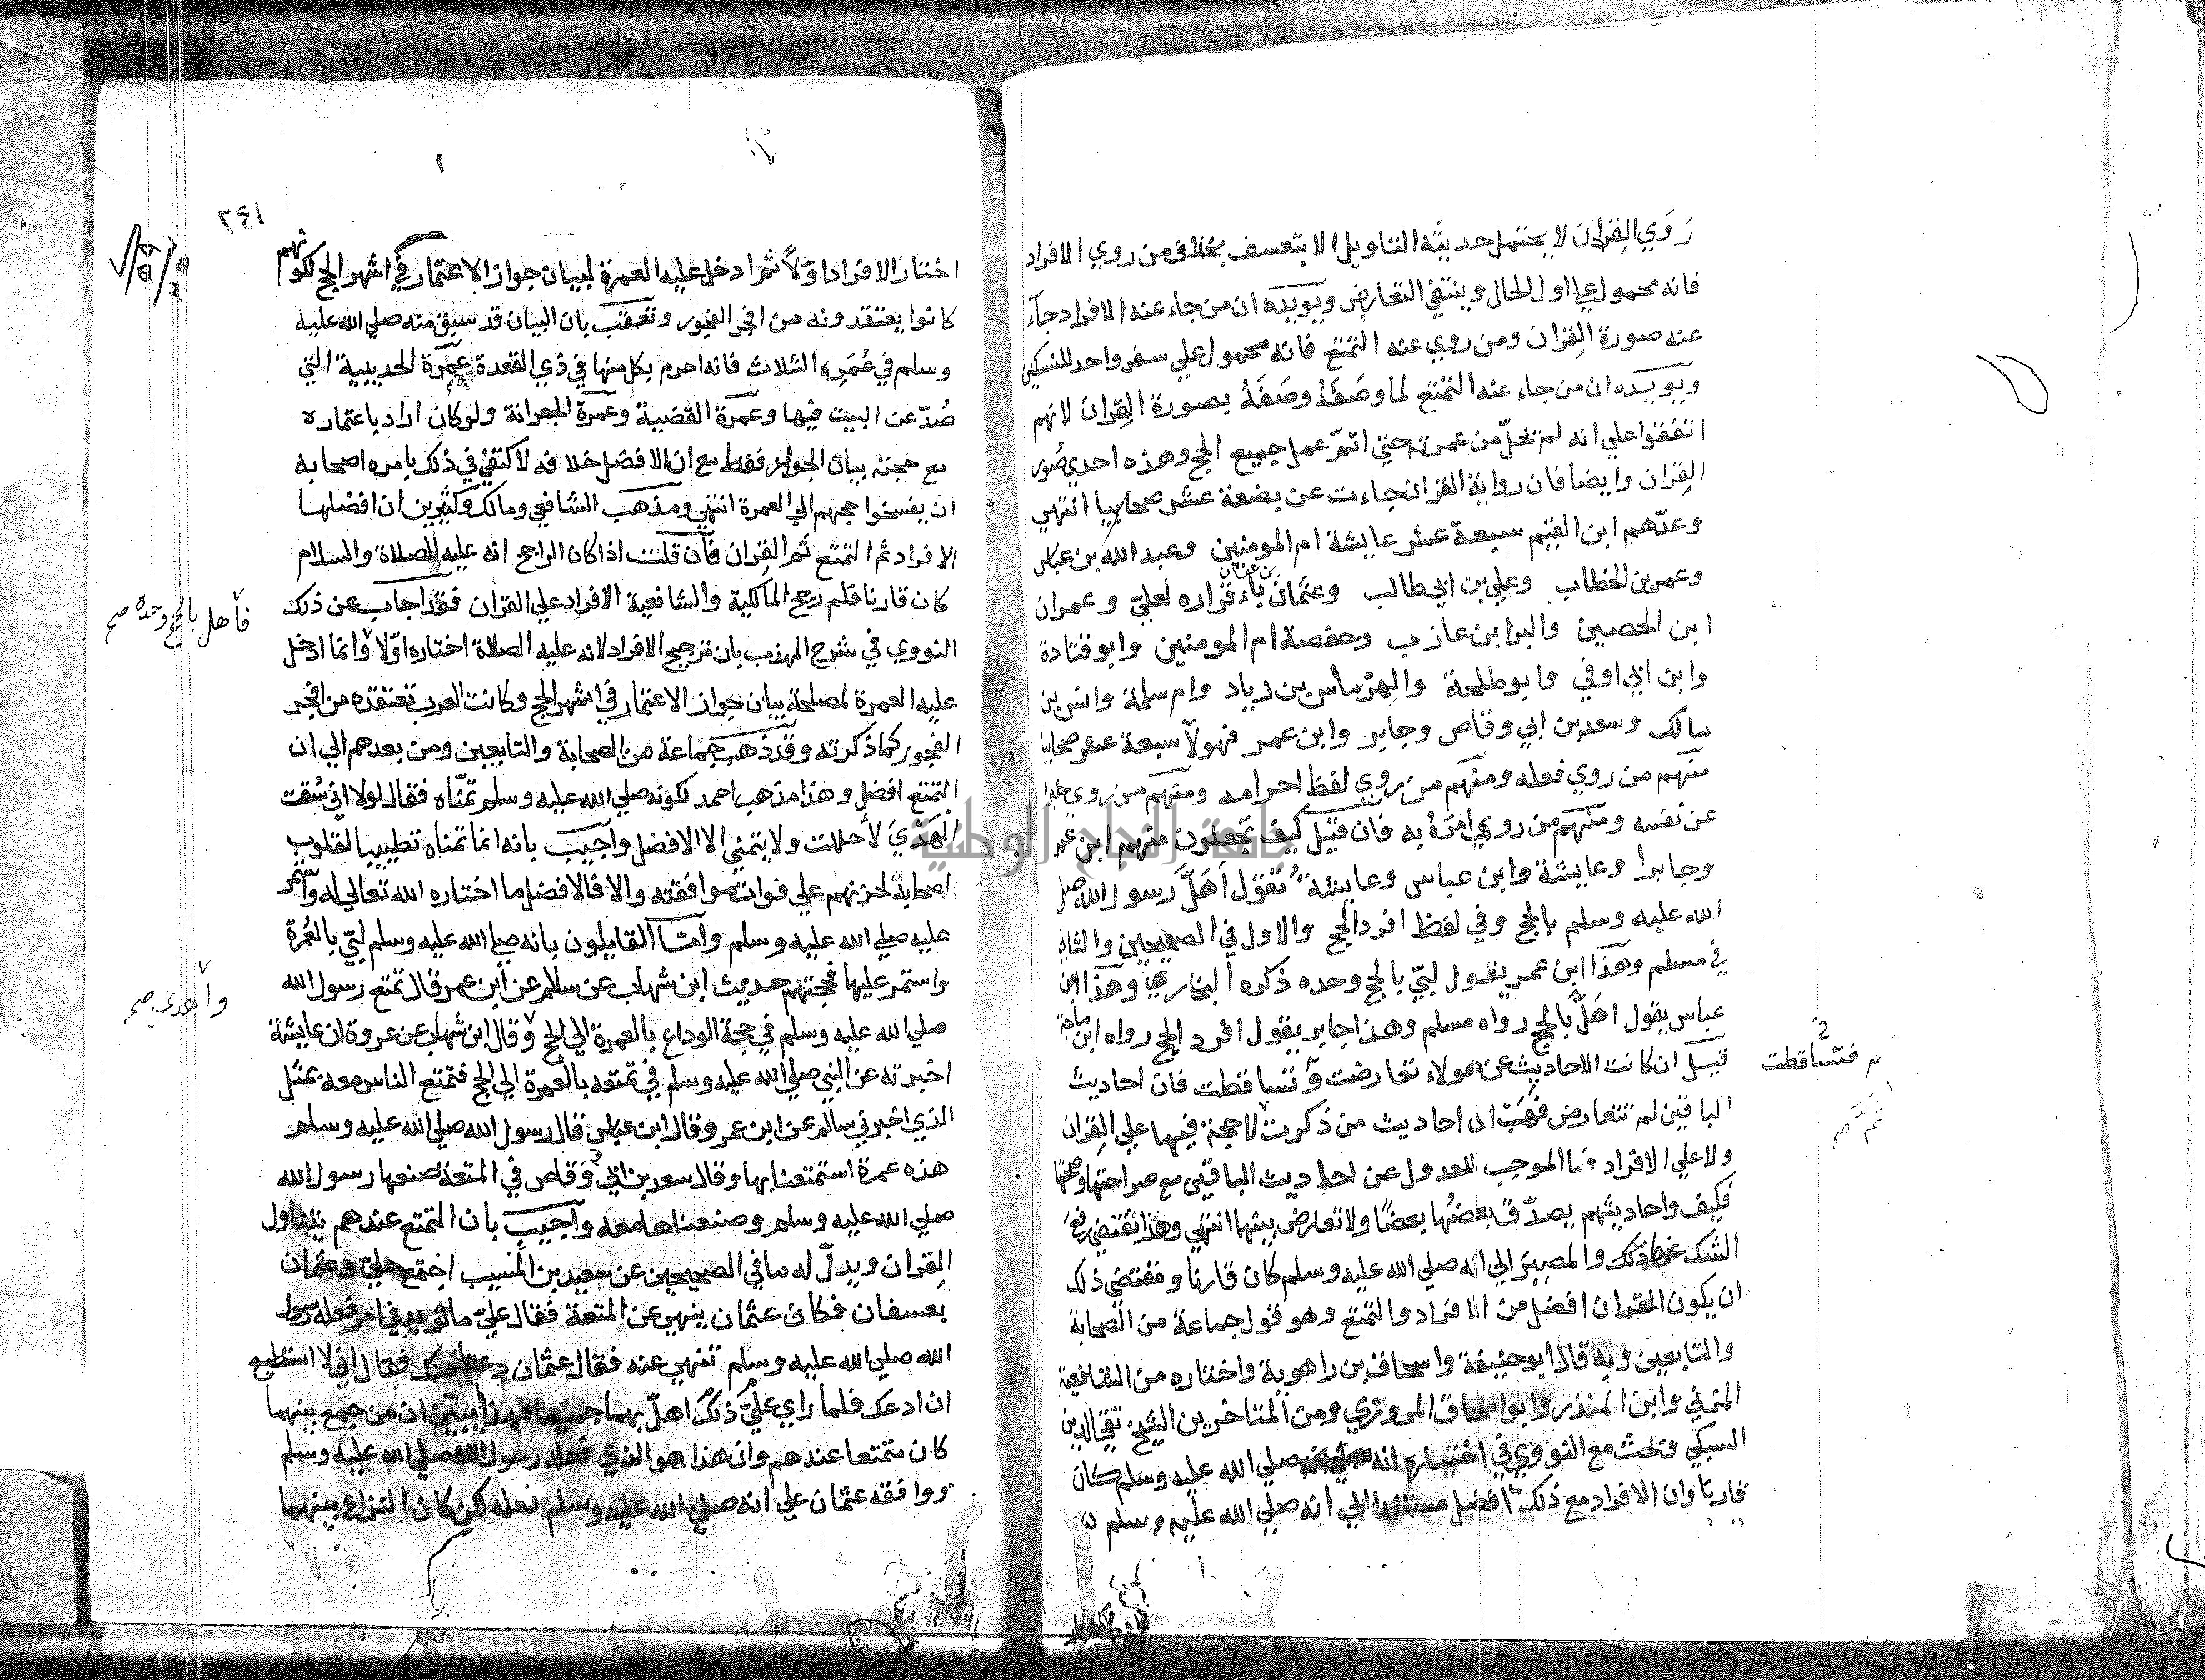 رَوَي القِران لا يحتمل حديثه التاويل الا بتعسف بخلاف من روي الافراد
فانه محمول علي اول الحال وينتفي التعارض ويويده ان من جاء عنه الافراد جآء
عنه صورة القِران ومن روي عنه التمتع فانه محمول علي سفر واحد للنسكين
ويويده ان من جاء عنه التمتع لما وصَفَهُ وصَفَهُ بصورة القِران لانهم
اتفقوا علي انه لم يحلّ من عمرته حتي اتمّ عمل جميع الحج وهذه احدي صُور
القِران وايضا فان رواية القران جاءت عن بضعة عشر صحابيا انتهي
وعدّهم ابن القيم سبعة عشر عايشة ام المومنين وعبد الله بن عباس
وعمر بن الخطاب وعلي بن ابي طالب وعثمان بن عفان باقراره لعليّ وعمران
ابن الحصين والبرا بن عازب وحفصة ام المومنين وابو قتادة
وابن ابي اوفي وابو طلحة والهِرْماس بن زياد وام سلمة وانس بن
مالك وسعد بن ابي وقاص وجابر وابن عمر فهولآ سبعة عشر صحابيا
منهم من روي فعله ومنهم من روي لفظ احرامه ومنهم من روي خبره
عن نفسه ومنهم من روي امرَهُ به فان قيل كيف تجعلون منهم ابن عمر
وجابرا وعايشة وابن عباس وعايشة تقول اهَلّ رسول الله صلي
الله عليه وسلم بالحج وفي لفظ افرد الحج والاول في الصحيحين والثاني
في مسلم وهذا ابن عمر يقول لبّي بالحج وحده ذكره البخاري وهذا ابن
عباس يقول اهلّ بالحج رواه مسلم وهذا جابر يقول افرد الحج رواه ابن ماجة
قيل ان كانت الاحاديث عن هولاء تعارضت وتساقطت فان احاديث
فتساقطت
الباقين لم تتعارض فهَبْ ان احاديث من ذكرت لا حجة فيها علي القِران
ولا علي الافراد فما الموجب للعدول عن احاديث الباقين مع صراحتها وصحتها
فكيف واحاديثهم يصدّق بعضُها بعضًا ولا تعارض بينها انتهي وهذا يقتضي رفع
الشك عن ذلك والمصيرَ الي انه صلي الله عليه وسلم كان قارنا ومقتضي ذلك
ان يكون القران افضل من الافراد والتمتع وهو قول جماعة من الصحابة
والتابعين وبه قال ابو حنيفة واسحاق بن راهوية واختاره من الشافعية
المزني وابن المنذر وابو اسحاق المروزي ومن المتاخرين الشيخ تقي الدين
السبكي وبحث مع النووي في اختياره انه صلي الله عليه وسلم كان
قارنا وان الافراد مع ذلك افضل مستندا الي انه صلي الله عليه وسلم
٢٤١
اختار الافراد اوّلاً ثم ادخل عليه العمرة لبيان جواز الاعتمار في اشهر الحج لكونهم
كانوا يعتقدونه من افجر الفجور وتعقب بان البيان قد سبق منه صلي الله عليه
وسلم في عُمَرِه الثلاث فانه احرم بكل منها في ذي القعدة عمرة الحديبية التي
صُدّ عن البيت فيها وعمرة القضية وعمرة الجعرانة ولو كان اراد باعتماره
مع حجته بيان الجواز فقط مع ان الافضل خلافه لاكتفي في ذلك بامره اصحابه
ان يفسخوا حجهم الي العمرة انتهي ومذهب الشافعي ومالك وكثيرين ان افضلها
الافراد ثم التمتع ثم القران فان قلت اذا كان الراجح انه عليه الصلاة والسلام
كان قارنا فلم رجح المالكية والشافعية الافراد علي القران فقد اجاب عن ذلك
النووي في شرح المهذب بان ترجيح الافراد لانه عليه الصلاة اختاره اوّلا وانما ادخل
فأهل بالحج وحده صح
عليه العمرة لمصلحة بيان جواز الاعتمار في اشهر الحج وكانت العرب تعتقده من افجر
الفجور كما ذكرته وقد ذهب جماعة من الصحابة والتابعين ومن بعدهم الي ان
التمتع افضل وهذا مذهب احمد لكونه صلي الله عليه وسلم تمنّاه فقال لولا اني سُقت
الهَدْيَ لأحللت ولا يتمني الا الافضل واجيب بانه انما تمناه تطييبا لقلوب
اصحابه لحزنهم علي فوات موافقته والا فالافضل ما اختاره الله تعالي له واستمر
عليه صلي الله عليه وسلم وامّا القايلون بانه صلي الله عليه وسلم لبّي بالعُمرة
واستمر عليها فحجتهم حديث ابن شهاب عن سالم عن ابن عمر قال تمتع رسول الله
صلي الله عليه وسلم في حجة الوداع بالعمرة الي الحج وقال ابن شهاب عن عروة ان عايشة
وأهدى صح
اخبرته عن النبي صلي الله عليه وسلم في تمتعه بالعمرة الي الحج فتمتع الناس معه بمثل
الذي اخبرني سالم عن ابن عمر وقال ابن عباس قال رسول الله صلي الله عليه وسلم
هذه عمرة استمتعنا بها وقال سعد بن ابي وقاص في المتعة صنعها رسول الله
صلي الله عليه وسلم وصنعناها معه واجيب بان التمتع عندهم يتناول
القِران ويدلّ له ما في الصحيحين عن سعيد بن المسيب اجتمع عليّ وعثمان
بعسفان فكان عثمان ينهي عن المتعة فقال عليّ ما تريد في امر فعله رسول
الله صلي الله عليه وسلم تنهي عنه فقال عثمان دعنا منك فقال اني لا استطيع
ان ادعك فلما راي عليّ ذلك اهلّ بهما جميعا فهذا يبيّن ان من جمع بينهما
كان متمتعا عندهم وان هذا هو الذي فعله رسول الله صلي الله عليه وسلم
ووافقه عثمان علي انه صلي الله عليه وسلم فعله لكن كان النزاع بينهما
جامعة النجاح الوطنية